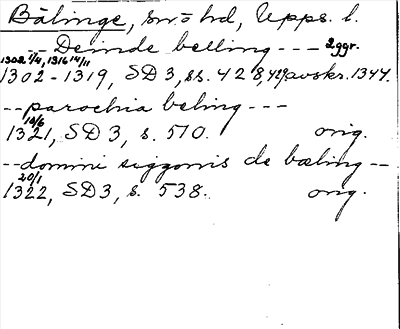 Bälinge, sn. o hd, Upps. l.
-- Deinde belling --- 2ggr.
1302 1/4, 1316 14/11
1302-1319, SD 3, ss. 428, 429 avskr. 1344.
-- parochia beling ---
10/6
1321, SD 3, s. 510. orig.
-- domini siggonis de bæling --
20/1
1322, SD 3, s. 538. orig.